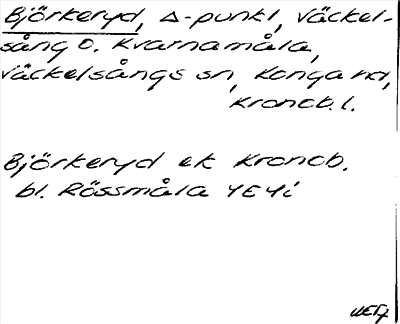 Björkeryd, Δ-punkt, Väckel-
sång o. Kvarnamåla,
Väckelsångs sn, Konga hd,
Kronob. l.
Björkeryd ek Kronob.
bl. Rössmåla 4E4i